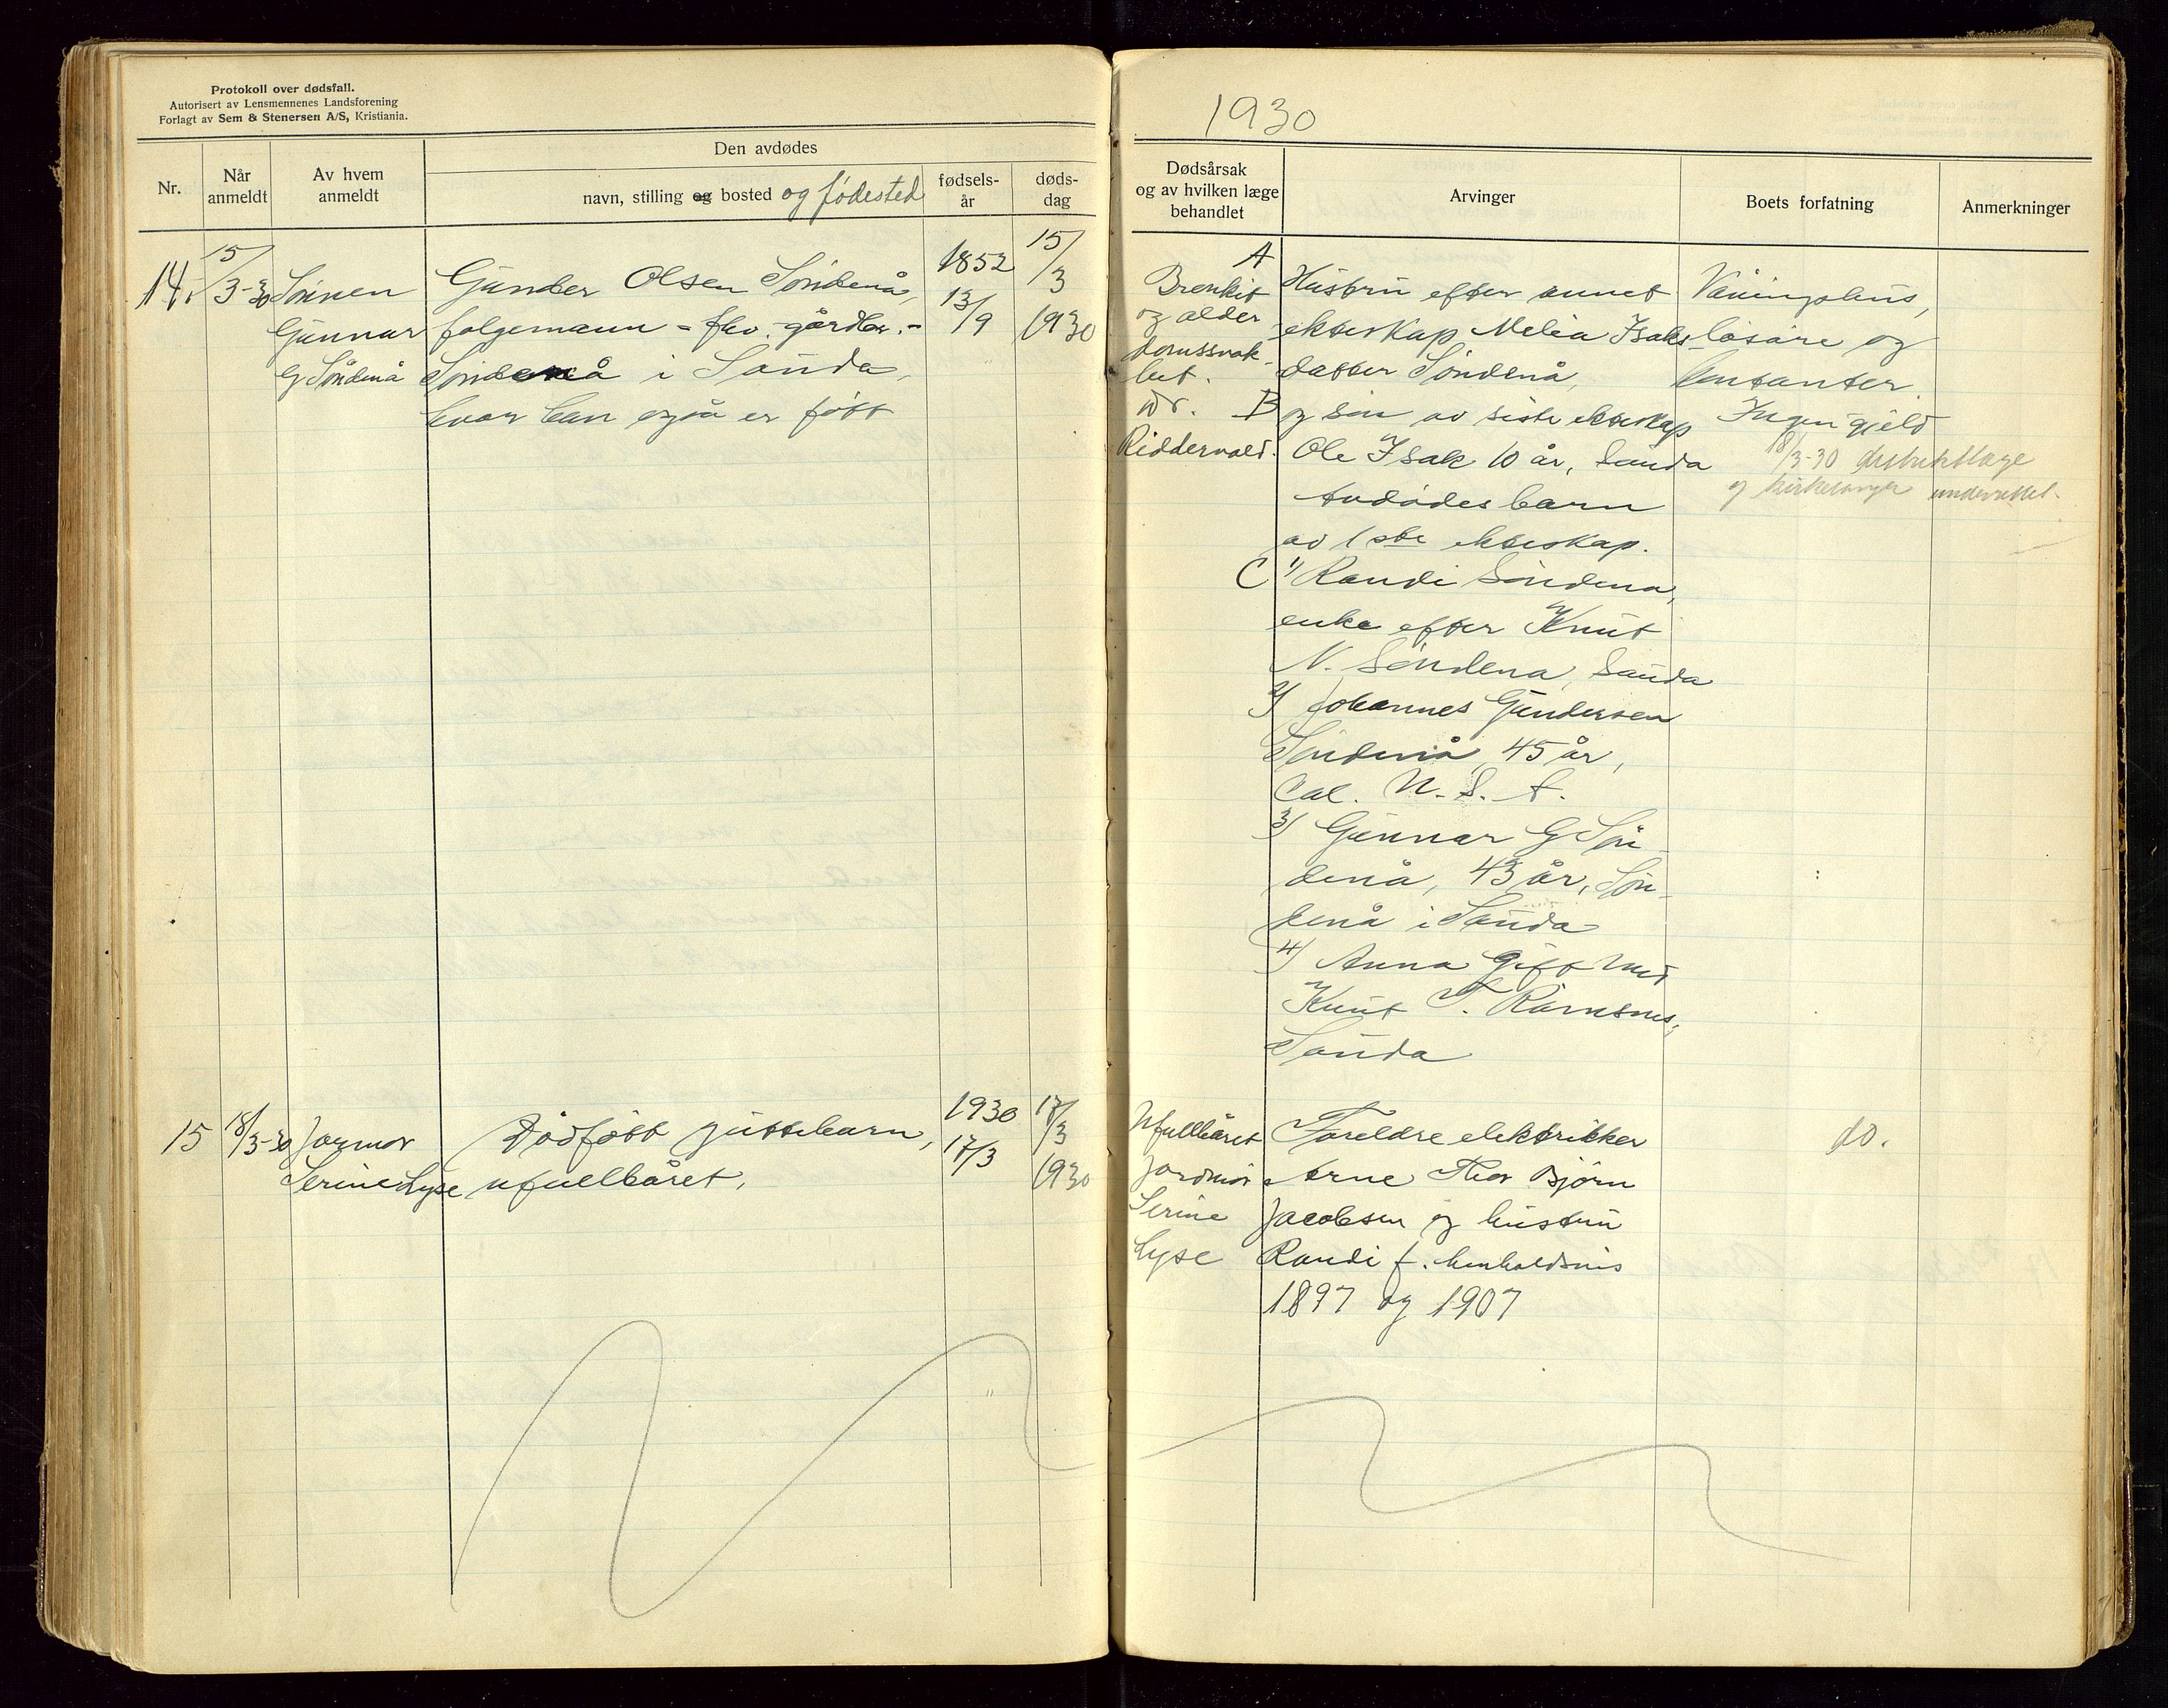 Protokoll over dødsfall.
Autorisert av Lensmennenes Landsforening
Forlagt av Sem & Stenersen A/S, Kristiania.
Nr.
Når
anmeldt
Av hvem
anmeldt
Den avdødes
navn, stilling og bosted og fødested
fødsels-
år
døds-
dag
14.
15/
3-30
Sønnen
Gunnar
G Søndenå
Gunder Olsen Søndenå,
følgemann - fhv. gårdbr. -
Søndenå i Sauda,
hvor han også er født
1852
13/9
15/
3
1930
15
18/3-30
Jormor
Serine Lyse
Dødfött guttebarn,
ufullbåret.
1930
17/3
17/3
1930
1930
Dødsårsak
og av hvilken læge
behandlet
Arvinger
Boets forfatning
Anmerkninger
Bronkit
og alder
domssvak
het.
Dr.
Riddervold.
A
Hustru efter annet
ekteskap Melia Isaks-
datter Søndenå,
B
og søn av siste ekteskap
Ole Isak 10 år, Sauda
Avdødes barn
av 1ste ekteskap.
C 1) Randi Søndena,
enke efter Knut
N. Søndena, Sauda
2) Johannes Gundersen
Søndenå, 45 år,
Cal. U.S.A.
3) Gunnar G Søn
denå, 43 år, Søn
denå i Sauda
4) Anna gift med
Knut T. Ramsnes,
Sauda
Våningshus,
løsøre og
kontanter.
Ingen gjeld
18/3-30 distriktslæge
og kirkesanger underrettet.
Ufullbåret
Jordmor
Serine
Lyse
Foreldre elektriker
Arne Thor Bjørn
Jacobsen og hustru
Randi f. henholdsvis
1897 og 1907
do.